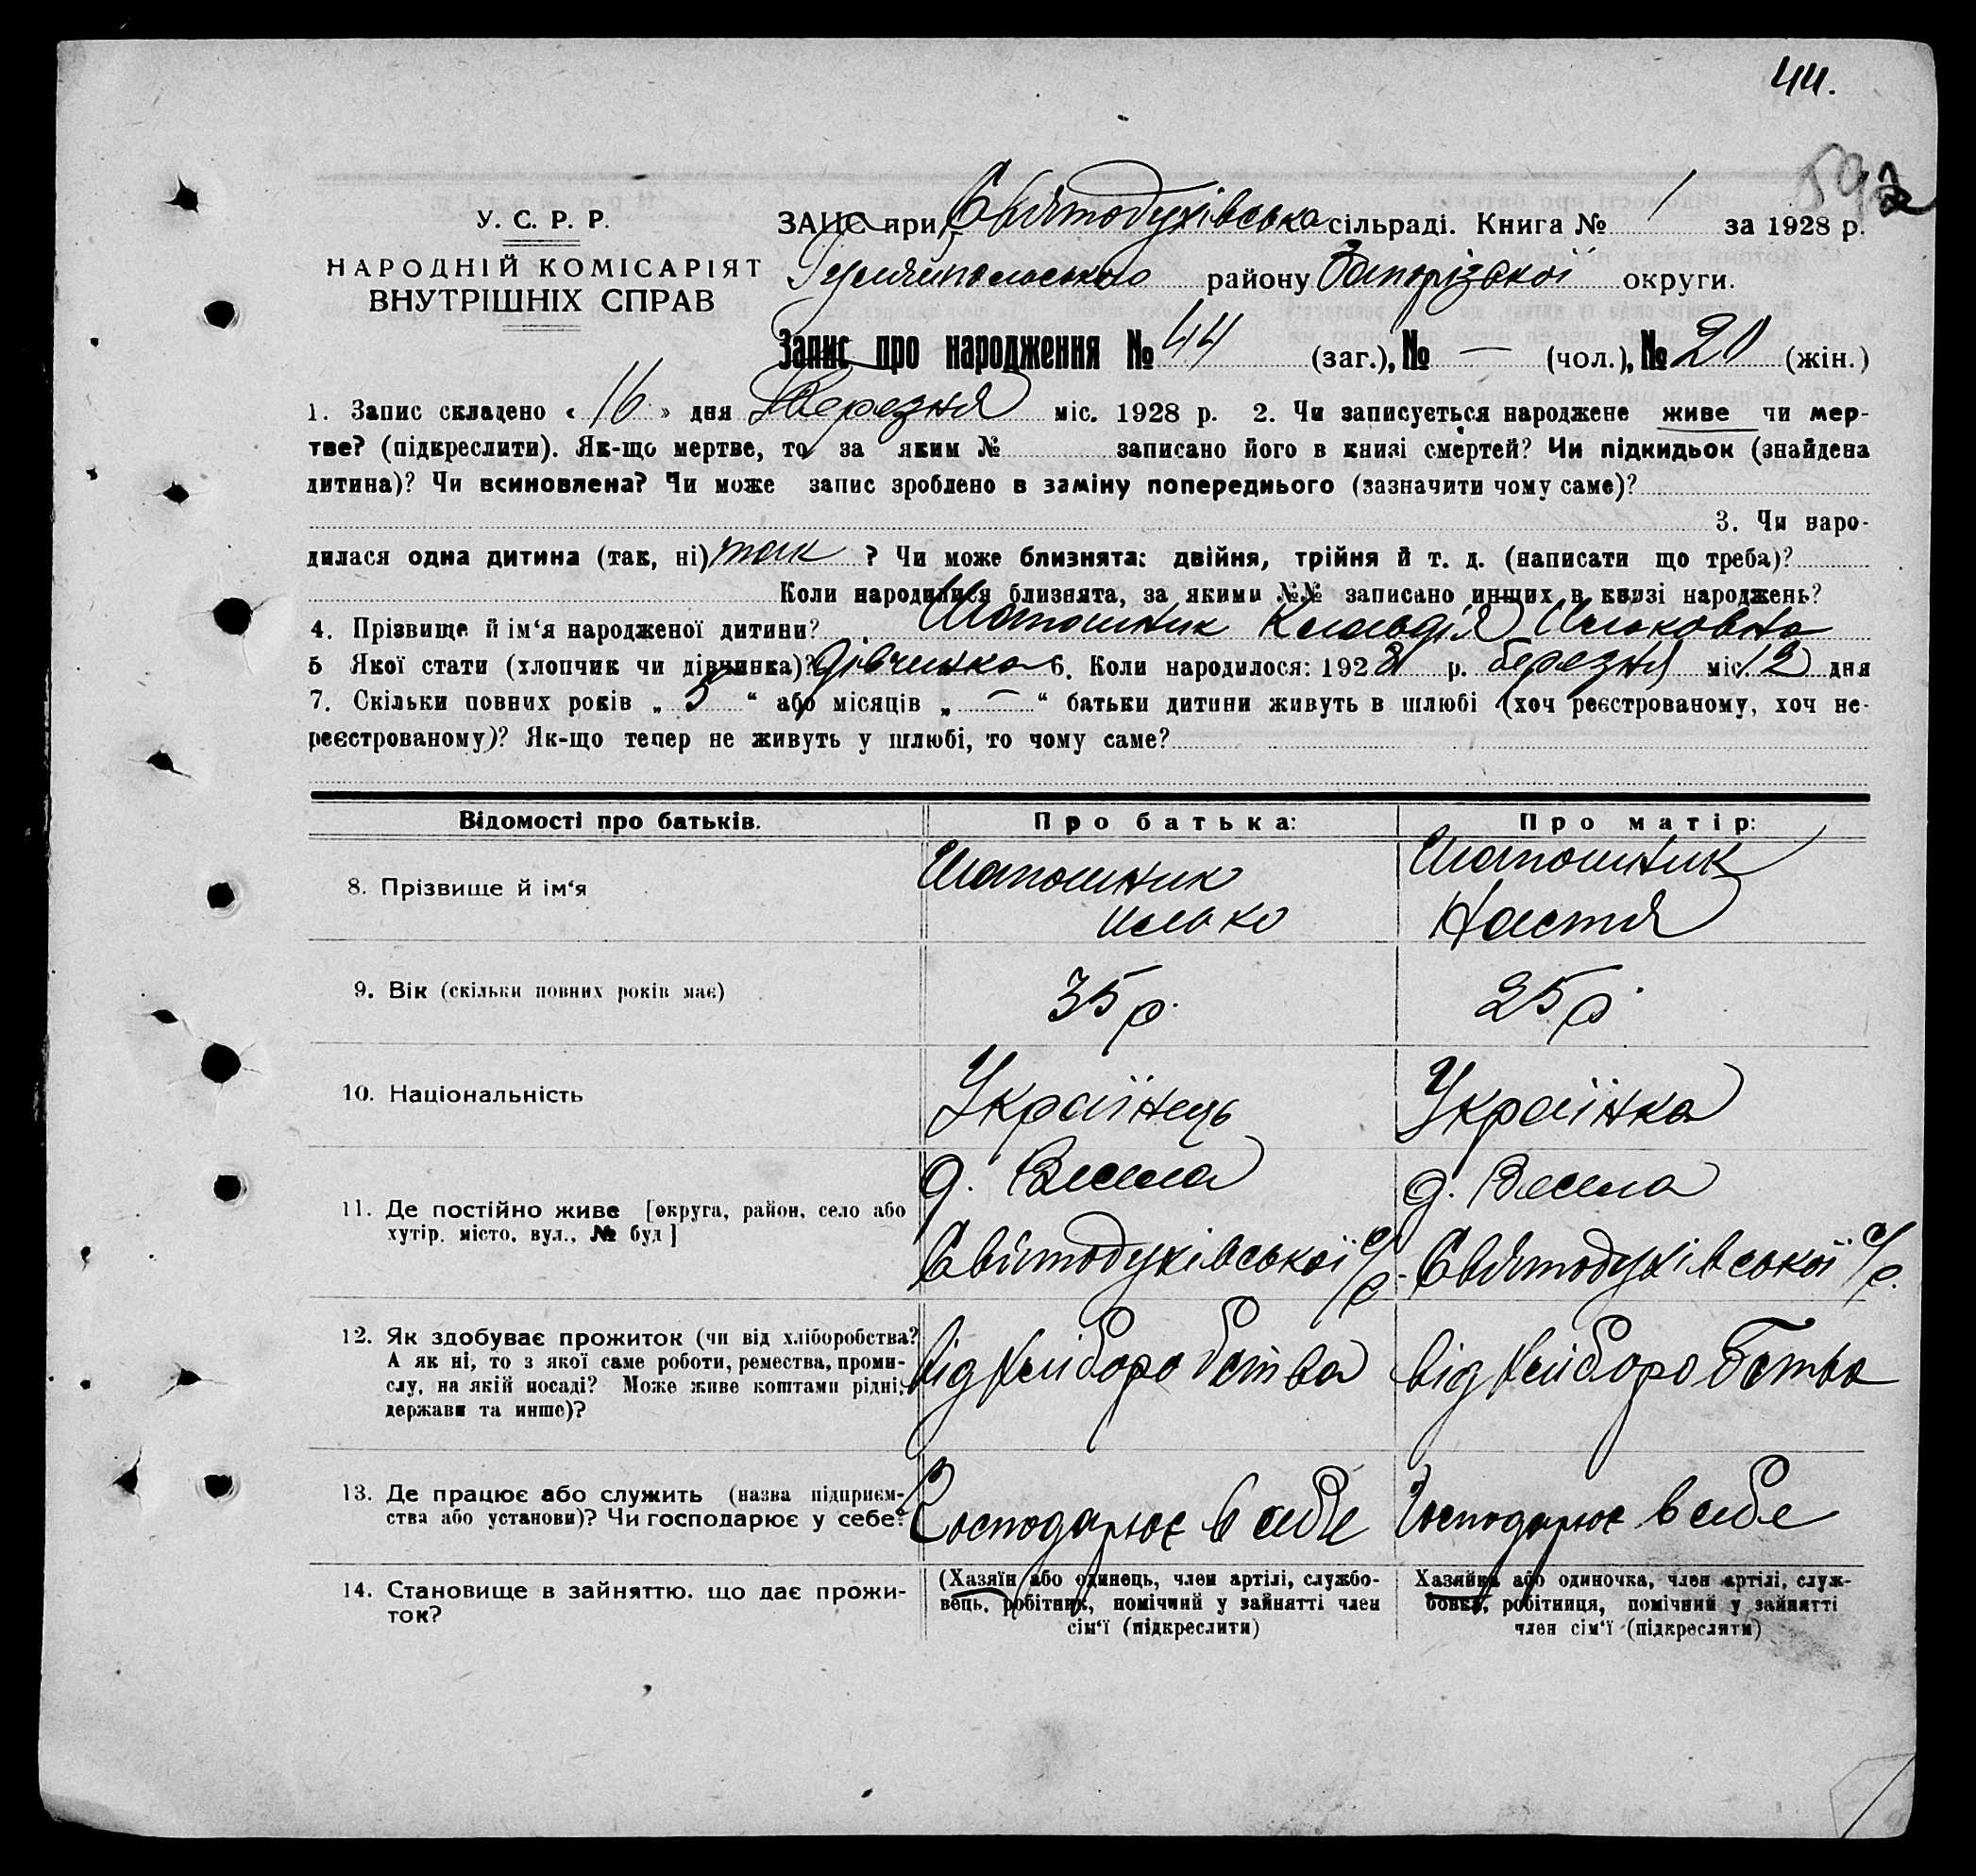 44.
592
У. С. Р. Р.
НАРОДНІЙ КОМІСАРІЯТ
ВНУТРІШНІХ СПРАВ
ЗАЦС при Святодухівська сільраді. Книга № 1 за 1928 р.
Гуляйпольського району Запорізької округи.
Запис про народження № 44 (заг.), № — (чол.), № 20 (жін.)
1. Запис складено « 16 » дня Березня міс. 1928 р. 2. Чи записується народжене живе чи мер-
тве? (підкреслити). Як-що мертве, то за яким № записано його в книзі смертей? Чи підкидьок (знайдена
дитина)? Чи всиновлена? Чи може запис зроблено в заміну попереднього (зазначити чому саме)?
3. Чи наро-
дилася одна дитина (так, ні) так ? Чи може близнята: двійня, трійня й т. д. (написати що треба)?
Коли народилися близнята, за якими №№ записано инших в книзі народжень?
4. Прізвище й ім‘я народженої дитини? Шапошник Клавдія Ільковна
5 Якої стати (хлопчик чи дівчинка)? дівчинка 6. Коли народилося: 1928 р. березня міс. 12 дня
7. Скільки повних років „ 5 “ або місяців „ — “ батьки дитини живуть в шлюбі (хоч реєстрованому, хоч не-
реєстрованому)? Як-що тепер не живуть у шлюбі, то чому саме?
Відомості про батьків. Про батька: Про матір:
8. Прізвище й ім‘я Шапошник Илько Шапошник Настя
9. Вік (скільки повних років має) 35 р. 25 р.
10. Національність Українець Українка
11. Де постійно живе [округа, район, село або
хутір, місто, вул., № буд]
д. Весела
Святодухівської с/р.
д. Весела
Святодухівської с/р.
12. Як здобуває прожиток (чи від хліборобства?
А як ні, то з якої саме роботи, ремества, проми-
слу, на якій посаді? Може живе коштами рідні,
держави та инше)?
від хліборобства від хліборобства
13. Де працює або служить (назва підприєм-
ства або установи)? Чи господарює у себе?
Господарює в себе Господарює в себе
14. Становище в зайняттю, що дає прожи-
ток?
(Хазяїн або одинець, член артілі, службо-
вець, робітник, помічний у зайнятті член
сім‘ї (підкреслити)
Хазяйка або одиночка, член артілі, служ-
бовка, робітниця, помічний у зайнятті
член сім‘ї (підкреслити)